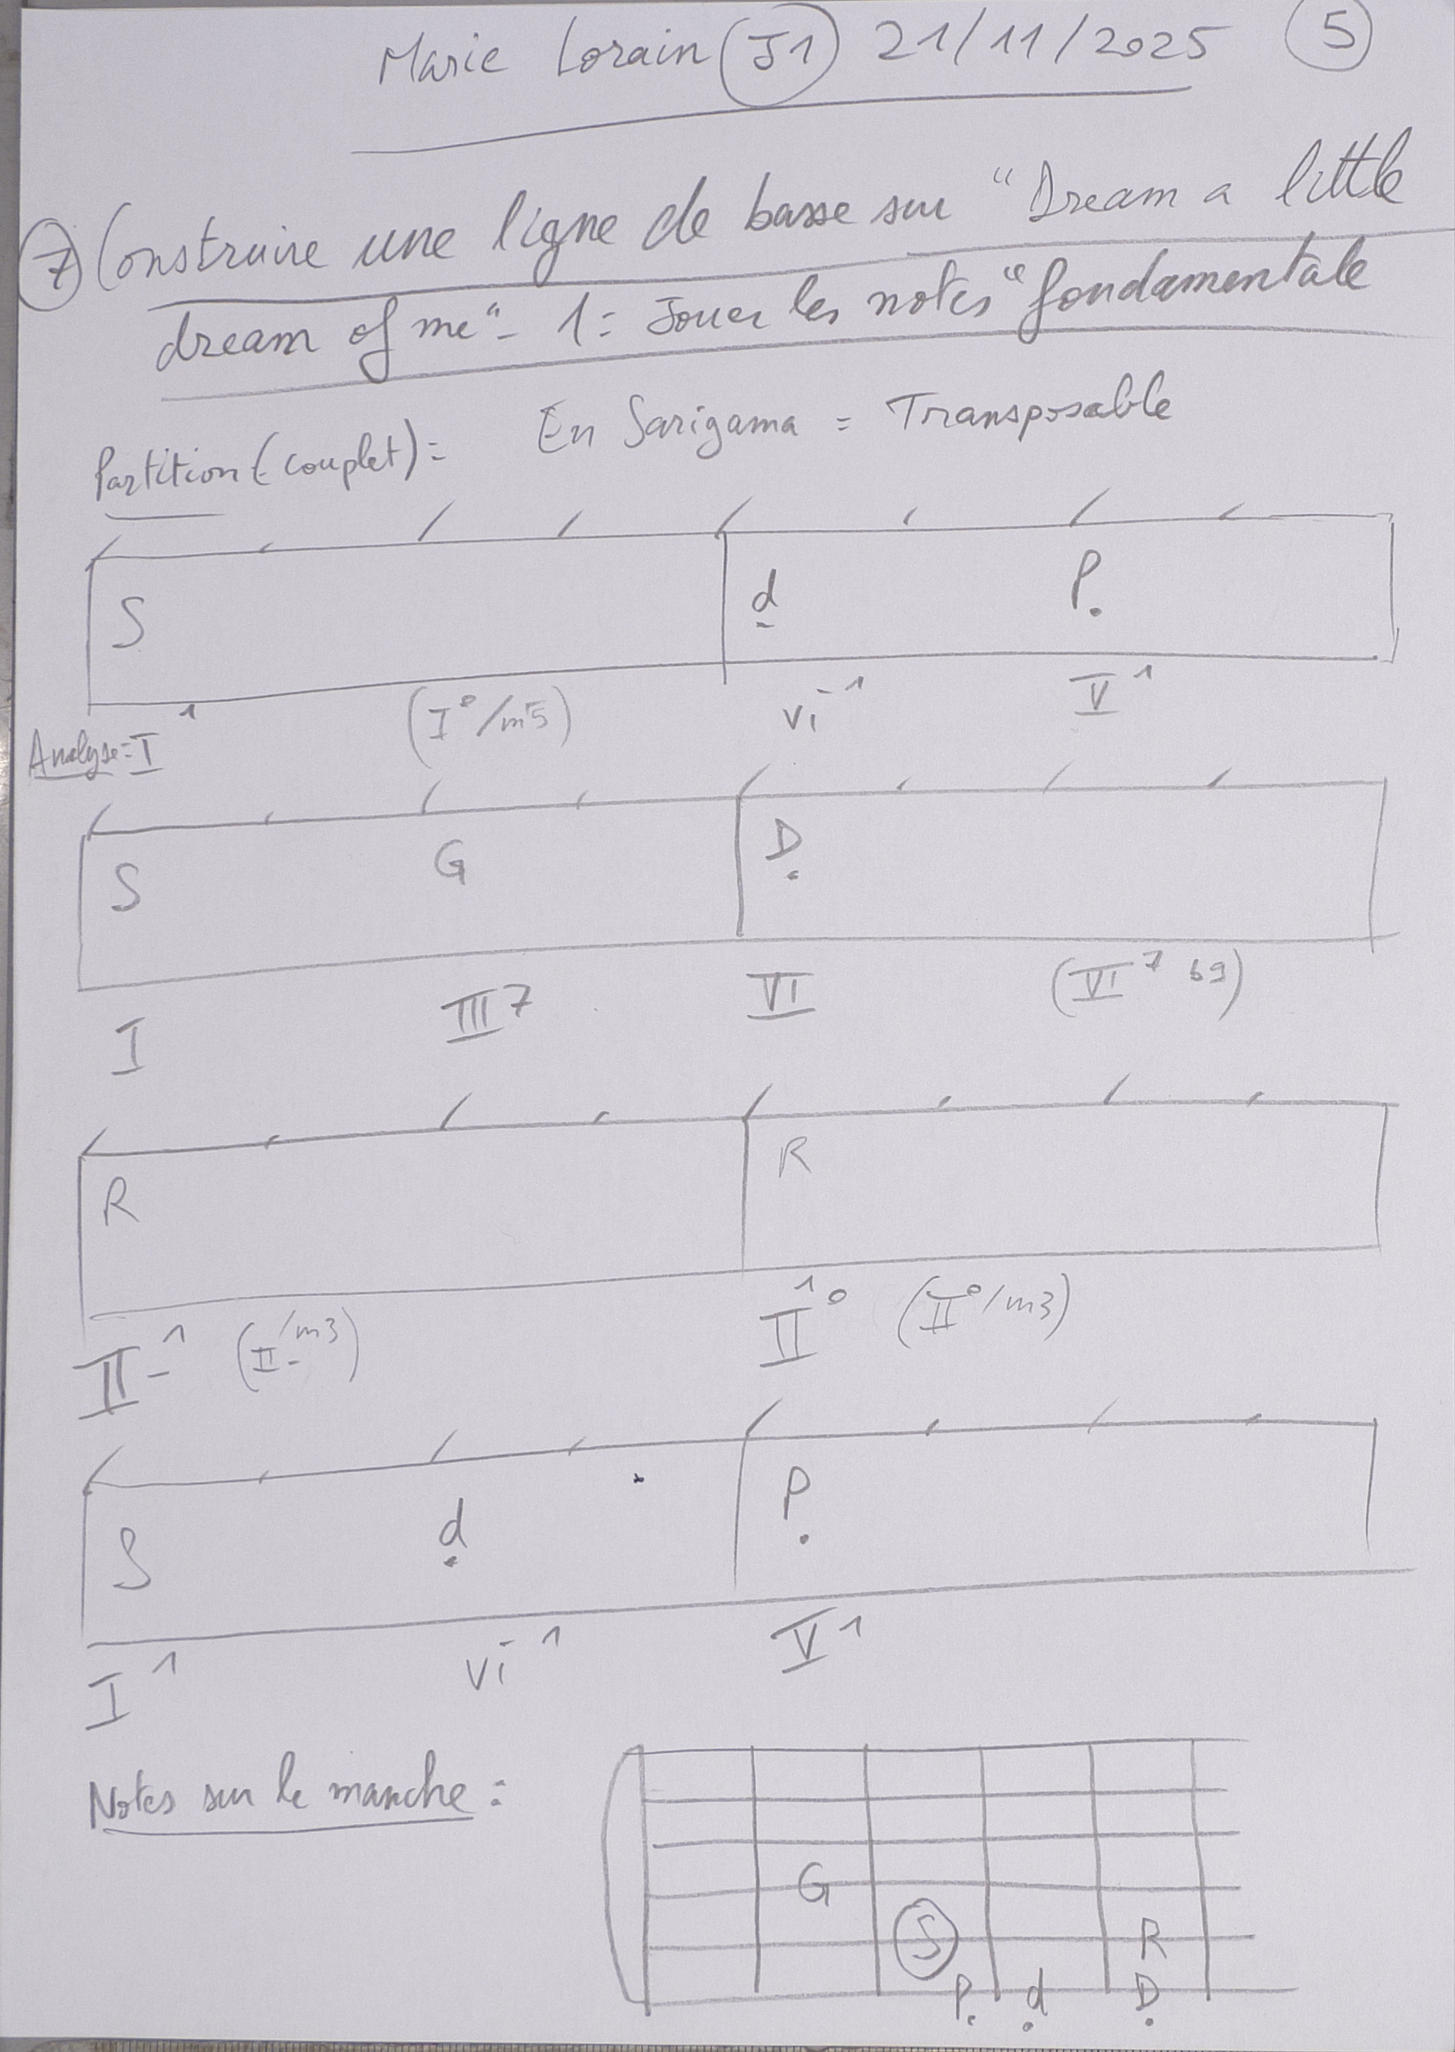 Marie Lorain (J1) 21/11/2025 (5)
(7) Construire une ligne de basse sur "Dream a little
dream of me" - 1 = Jouer les notes "fondamentale
Partition (couplet) = En Sarigama = Transposable
S ḍ P.
Analyse = I¹ (I°/m5) vi-¹ V¹
S G Ḍ
I III7 VI (VI⁷ b9)
R R
II-¹ (II-/m3) II¹° (II°/m3)
S ḍ P.
I¹ vi-¹ V¹
Notes sur le manche :
G
S R
P. ḍ Ḍ